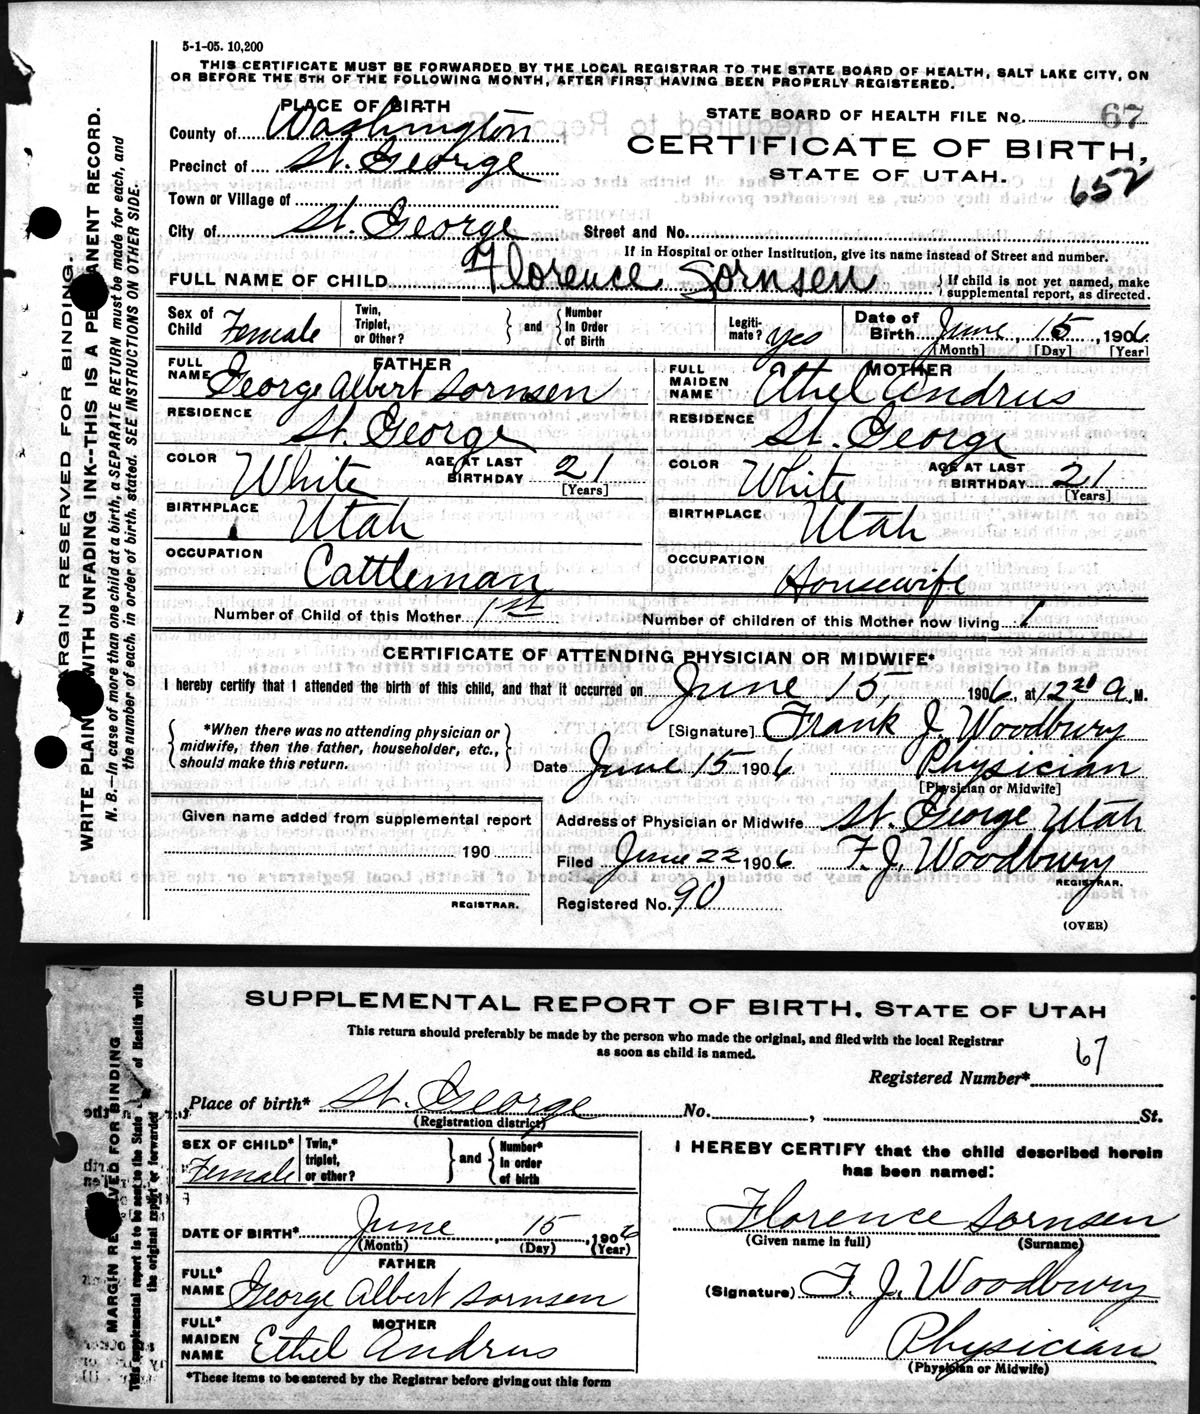 5-1-05. 10,200
THIS CERTIFICATE MUST BE FORWARDED BY THE LOCAL REGISTRAR TO THE STATE BOARD OF HEALTH, SALT LAKE CITY, ON
OR BEFORE THE 5TH OF THE FOLLOWING MONTH, AFTER FIRST HAVING BEEN PROPERLY REGISTERED.
PLACE OF BIRTH
STATE BOARD OF HEALTH FILE No. 67
County of Washington
CERTIFICATE OF BIRTH,
Precinct of St. George
STATE OF UTAH.
652
Town or Village of
City of St. George Street and No.
If in Hospital or other Institution, give its name instead of Street and number.
FULL NAME OF CHILD Florence Sornsen { If child is not yet named, make supplemental report, as directed.
Sex of Child Female Twin, Triplet, or Other? } and { Number In Order of Birth Legiti-mate? yes Date of Birth June, 15, 1906
[Month] [Day] [Year]
FATHER MOTHER
FULL NAME George Albert Sornsen FULL MAIDEN NAME Ethel Andrus
RESIDENCE St. George RESIDENCE St. George
COLOR White AGE AT LAST BIRTHDAY 21 [Years] COLOR White AGE AT LAST BIRTHDAY 21 [Years]
BIRTHPLACE Utah BIRTHPLACE Utah
OCCUPATION Cattleman OCCUPATION Housewife
Number of Child of this Mother 1st Number of children of this Mother now living 1
CERTIFICATE OF ATTENDING PHYSICIAN OR MIDWIFE*
I hereby certify that I attended the birth of this child, and that it occurred on June 15th 1906, at 12 20 A. M.
{ *When there was no attending physician or midwife, then the father, householder, etc., should make this return. }
[Signature] Frank J. Woodbury
Date June 15 1906 Physician
[Physician or Midwife]
Given name added from supplemental report
Address of Physician or Midwife St. George Utah
190
Filed June 22 1906 F. J. Woodbury
REGISTRAR.
REGISTRAR.
Registered No. 90
(OVER)
MARGIN RESERVED FOR BINDING.
WRITE PLAINLY WITH UNFADING INK--THIS IS A PERMANENT RECORD.
N. B.--In case of more than one child at a birth, a SEPARATE RETURN must be made for each, and
the number of each, in order of birth, stated. SEE INSTRUCTIONS ON OTHER SIDE.
SUPPLEMENTAL REPORT OF BIRTH, STATE OF UTAH
This return should preferably be made by the person who made the original, and filed with the local Registrar
as soon as child is named.
Registered Number* 67
Place of birth* St. George No. , St.
(Registration district)
SEX OF CHILD* Female Twin,* triplet, or other? } and { Number* In order of birth
I HEREBY CERTIFY that the child described herein
has been named:
DATE OF BIRTH* June, 15, 1906
(Month) (Day) (Year)
Florence Sornsen
(Given name in full) (Surname)
FATHER
FULL* NAME George Albert Sornsen
(Signature) F. J. Woodbury
MOTHER
FULL* MAIDEN NAME Ethel Andrus
Physician
(Physician or Midwife)
*These items to be entered by the Registrar before giving out this form
MARGIN RESERVED FOR BINDING
This supplemental report is to be sent to the State of Health with
the original report or forwarded